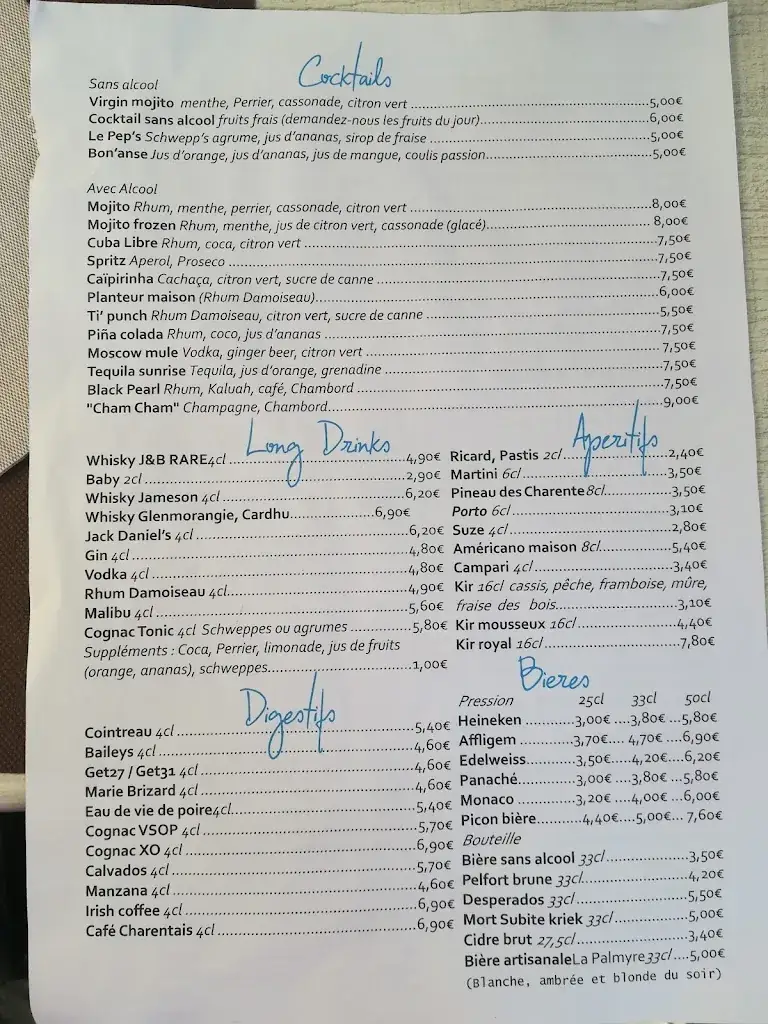 Cocktails
Sans alcool
Virgin mojito menthe, Perrier, cassonade, citron vert ....5,00€
Cocktail sans alcool fruits frais (demandez-nous les fruits du jour)....6,00€
Le Pep's Schwepp's agrume, jus d'ananas, sirop de fraise ....5,00€
Bon'anse Jus d'orange, jus d'ananas, jus de mangue, coulis passion....5,00€
Avec Alcool
Mojito Rhum, menthe, perrier, cassonade, citron vert ....8,00€
Mojito frozen Rhum, menthe, jus de citron vert, cassonade (glacé)....8,00€
Cuba Libre Rhum, coca, citron vert ....7,50€
Spritz Aperol, Proseco ....7,50€
Caïpirinha Cachaça, citron vert, sucre de canne ....7,50€
Planteur maison (Rhum Damoiseau)....6,00€
Ti' punch Rhum Damoiseau, citron vert, sucre de canne ....5,50€
Piña colada Rhum, coco, jus d'ananas ....7,50€
Moscow mule Vodka, ginger beer, citron vert ....7,50€
Tequila sunrise Tequila, jus d'orange, grenadine ....7,50€
Black Pearl Rhum, Kaluah, café, Chambord ....7,50€
"Cham Cham" Champagne, Chambord....9,00€
Long Drinks
Whisky J&B RARE4cl ....4,90€
Baby 2cl ....2,90€
Whisky Jameson 4cl ....6,20€
Whisky Glenmorangie, Cardhu....6,90€
Jack Daniel's 4cl ....6,20€
Gin 4cl ....4,80€
Vodka 4cl ....4,80€
Rhum Damoiseau 4cl....4,90€
Malibu 4cl ....5,60€
Cognac Tonic 4cl Schweppes ou agrumes ....5,80€
Suppléments : Coca, Perrier, limonade, jus de fruits
(orange, ananas), schweppes....1,00€
Digestifs
Cointreau 4cl ....5,40€
Baileys 4cl ....4,60€
Get27 / Get31 4cl ....4,60€
Marie Brizard 4cl ....4,60€
Eau de vie de poire4cl....5,40€
Cognac VSOP 4cl ....5,70€
Cognac XO 4cl ....6,90€
Calvados 4cl ....5,70€
Manzana 4cl ....4,60€
Irish coffee 4cl ....6,90€
Café Charentais 4cl....6,90€
Aperitifs
Ricard, Pastis 2cl....2,40€
Martini 6cl ....3,50€
Pineau des Charente8cl....3,50€
Porto 6cl ....3,10€
Suze 4cl ....2,80€
Américano maison 8cl....5,40€
Campari 4cl ....3,40€
Kir 16cl cassis, pêche, framboise, mûre,
fraise des bois....3,10€
Kir mousseux 16cl....4,40€
Kir royal 16cl....7,80€
Bieres
Pression 25cl 33cl 50cl
Heineken ....3,00€ ....3,80€ ...5,80€
Affligem ....3,70€.... 4,70€ ...6,90€
Edelweiss....3,50€....4,20€...6,20€
Panaché....3,00€ ...3,80€ ...5,80€
Monaco ....3,20€ ....4,00€ ...6,00€
Picon bière....4,40€....5,00€... 7,60€
Bouteille
Bière sans alcool 33cl....3,50€
Pelfort brune 33cl....4,20€
Desperados 33cl....5,50€
Mort Subite kriek 33cl....5,00€
Cidre brut 27,5cl....3,40€
Bière artisanaleLa Palmyre33cl....5,00€
(Blanche, ambrée et blonde du soir)